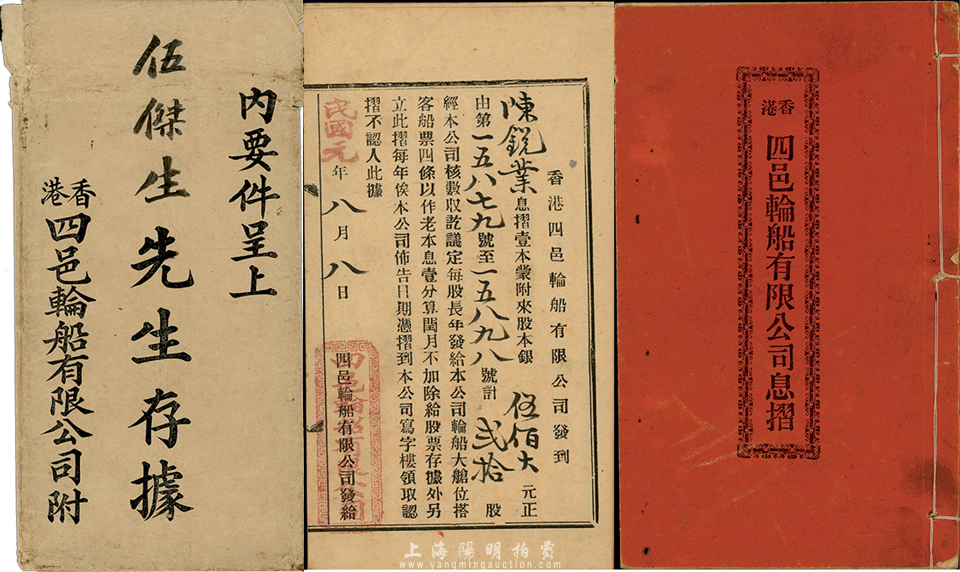 內要件呈上
伍傑生先生存據
香港四邑輪船有限公司附
香港四邑輪船有限公司發到
陳銳業息摺壹本蒙附來股本銀伍佰大元正
由第一五八七九號至一五八九八號計貳拾股
經本公司核數收訖議定每股長年發給本公司輪船大艙位搭
客船票四條以作老本息壹分算閏月不加除給股票存據外另
立此摺每年俟本公司佈告日期憑摺到本公司寫字樓領取認
摺不認人此據
四邑輪船有限公司發給
民國元年八月八日
香港四邑輪船有限公司息摺
上海陽明拍賣
www.yangmingauction.com